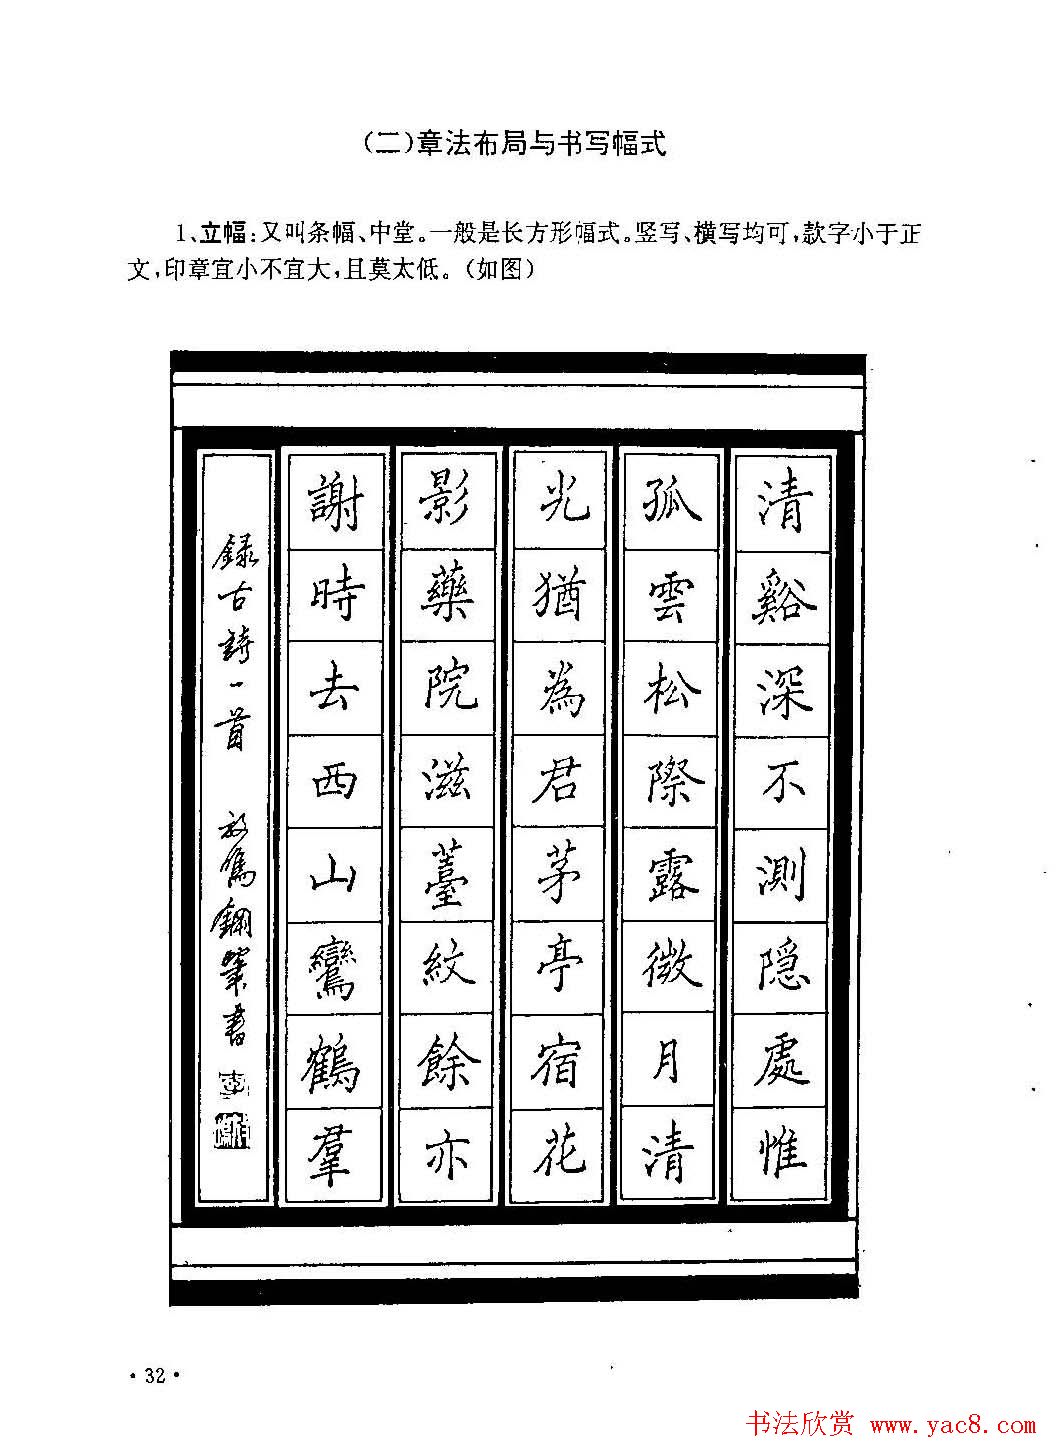 （二）章法布局与书写幅式
1、立幅：又叫条幅、中堂。一般是长方形幅式。竖写、横写均可，款字小于正
文，印章宜小不宜大，且莫太低。（如图）
清谿深不測隐處惟
孤雲松際露微月清
光猶為君茅亭宿花
影藥院滋薹紋餘亦
謝時去西山鸞鶴羣
録古詩一首 放雋鋼筆書
·32·
书法欣赏 www.yac8.com